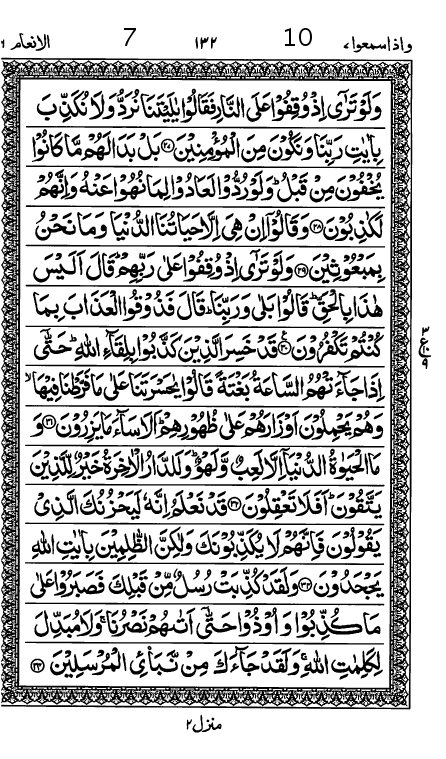 واذاسمعوا٧ 10 ١٣٢ 7 الانعام ٦
وَلَوْ تَرٰۤى اِذْ وُقِفُوْا عَلَى النَّارِ فَقَالُوْا یٰلَیْتَنَا نُرَدُّ وَلَا نُكَذِّبَ
بِاٰیٰتِ رَبِّنَا وَنَكُوْنَ مِنَ الْمُؤْمِنِیْنَ ۲۷ بَلْ بَدَا لَهُمْ مَّا كَانُوْا
یُخْفُوْنَ مِنْ قَبْلُ ؕ وَلَوْ رُدُّوْا لَعَادُوْا لِمَا نُهُوْا عَنْهُ وَاِنَّهُمْ
لَكٰذِبُوْنَ ۲۸ وَقَالُوْۤا اِنْ هِیَ اِلَّا حَیَاتُنَا الدُّنْیَا وَمَا نَحْنُ
بِمَبْعُوْثِیْنَ ۲۹ وَلَوْ تَرٰۤى اِذْ وُقِفُوْا عَلٰى رَبِّهِمْ ؕ قَالَ اَلَیْسَ
هٰذَا بِالْحَقِّ ؕ قَالُوْا بَلٰى وَرَبِّنَا ؕ قَالَ فَذُوْقُوا الْعَذَابَ بِمَا
كُنْتُمْ تَكْفُرُوْنَ ۳۰ قَدْ خَسِرَ الَّذِیْنَ كَذَّبُوْا بِلِقَآءِ اللّٰهِ ؕ حَتّٰۤى
اِذَا جَآءَتْهُمُ السَّاعَةُ بَغْتَةً قَالُوْا یٰحَسْرَتَنَا عَلٰى مَا فَرَّطْنَا فِیْهَا ۙ
وَهُمْ یَحْمِلُوْنَ اَوْزَارَهُمْ عَلٰى ظُهُوْرِهِمْ ؕ اَلَا سَآءَ مَا یَزِرُوْنَ ۳۱ وَ
مَا الْحَیٰوةُ الدُّنْیَاۤ اِلَّا لَعِبٌ وَّلَهْوٌ ؕ وَلَلدَّارُ الْاٰخِرَةُ خَیْرٌ لِّلَّذِیْنَ
یَتَّقُوْنَ ؕ اَفَلَا تَعْقِلُوْنَ ۳۲ قَدْ نَعْلَمُ اِنَّهٗ لَیَحْزُنُكَ الَّذِیْ
یَقُوْلُوْنَ فَاِنَّهُمْ لَا یُكَذِّبُوْنَكَ وَلٰكِنَّ الظّٰلِمِیْنَ بِاٰیٰتِ اللّٰهِ
یَجْحَدُوْنَ ۳۳ وَلَقَدْ كُذِّبَتْ رُسُلٌ مِّنْ قَبْلِكَ فَصَبَرُوْا عَلٰى
مَا كُذِّبُوْا وَاُوْذُوْا حَتّٰۤى اَتٰىهُمْ نَصْرُنَا ۚ وَلَا مُبَدِّلَ
لِكَلِمٰتِ اللّٰهِ ۚ وَلَقَدْ جَآءَكَ مِنْ نَّبَاِی الْمُرْسَلِیْنَ ۳۴
٣
ع
٩
منزل ٢